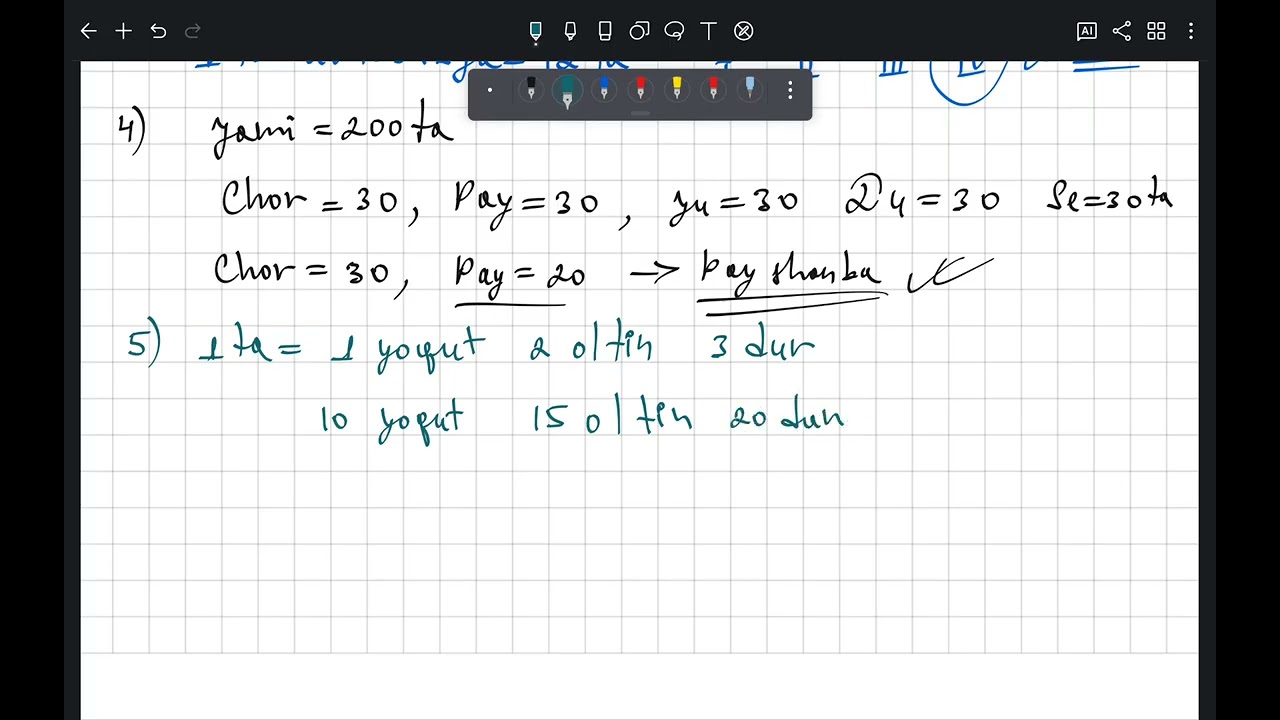 AI
III IV
4) Jami = 200 ta
Chor = 30, Pay = 30, Ju = 30 Du = 30 Se = 30 ta
Chor = 30, Pay = 20 → Payshanba
5) 1 ta = 1 yoqut 2 oltin 3 dur
10 yoqut 15 oltin 20 dur